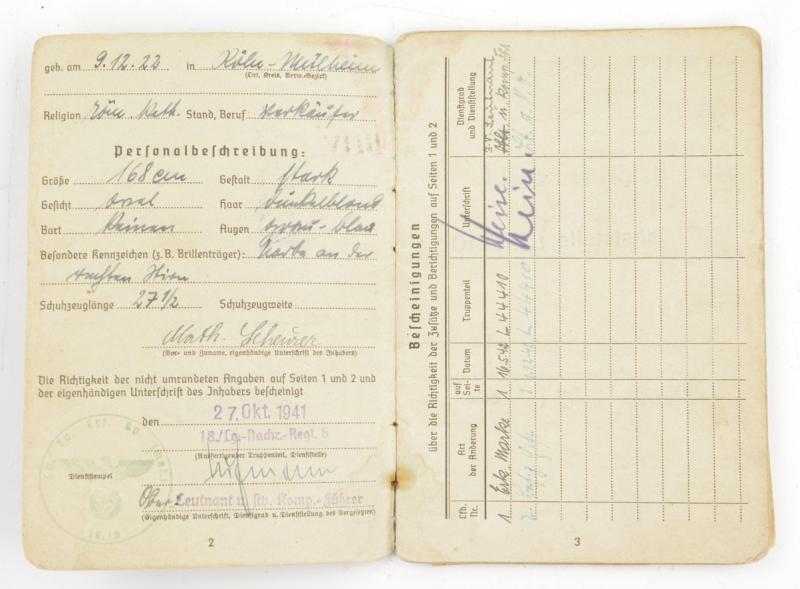 geb. am 9.12.22 in Köln-Mülheim
(Ort, Kreis, Verw.-Bezirk)
Religion Röm. Kath. Stand, Beruf Verkäufer
Personalbeschreibung:
Größe 168 cm Gestalt stark
Gesicht oval Haar dunkelblond
Bart keinen Augen grau-blau
Besondere Kennzeichen (z. B. Brillenträger): Narbe an der
rechten Stirn
Schuhzeuglänge 27 1/2 Schuhzeugweite
Math. Scheurer
(Vor- und Zuname, eigenhändige Unterschrift des Inhabers)
Die Richtigkeit der nicht umrandeten Angaben auf Seiten 1 und 2 und
der eigenhändigen Unterschrift des Inhabers bescheinigt
den 27. Okt. 1941
18./Lg.-Nachr.-Regt. 6
(Ausfertigender Truppenteil, Dienststelle)
Dienststempel
Ober Leutnant u. stv. Komp.-Führer
(Eigenhändige Unterschrift, Dienstgrad u. Dienststellung des Vorgesetzten)
2
Bescheinigungen
über die Richtigkeit der Zusätze und Berichtigungen auf Seiten 1 und 2
Lfd. Nr.
Art der Änderung
auf Seite
Datum
Truppenteil
Unterschrift
Dienstgrad und Dienststellung
1 Erk. Marke 1 16.5.42 L 44410
L 44410
3